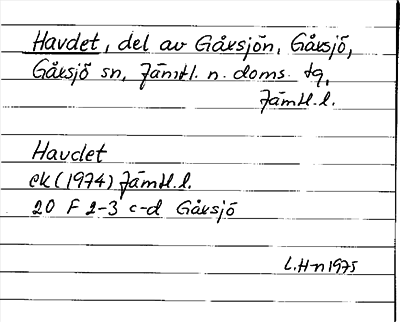 Havdet, del av Gåxsjön, Gåxsjö,
Gåxsjö sn, Jämtl. n. doms. tg,
Jämtl. l.
Havdet
ek (1974) Jämtl. l.
20 F 2-3 c-d Gåxsjö
L.H-n 1975